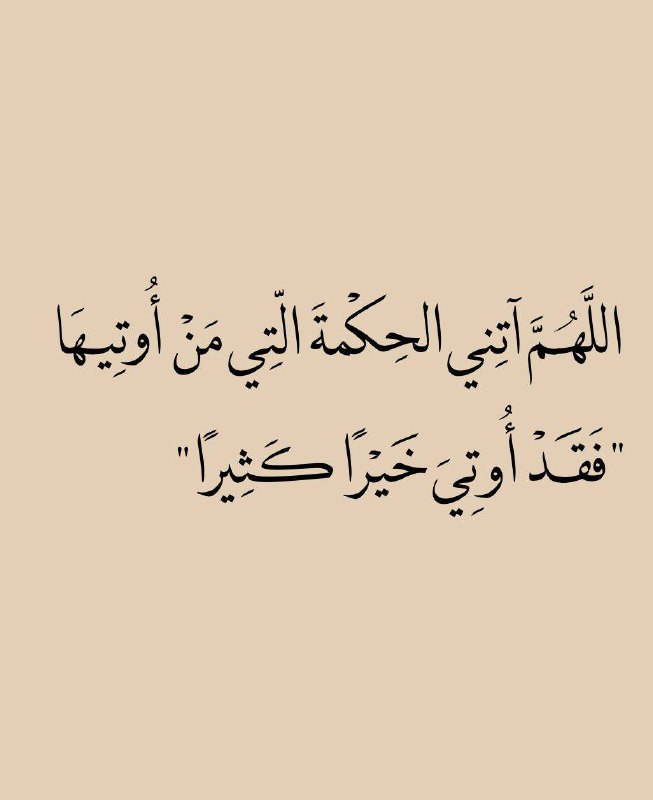 اللَّهُمَّ آتِني الحِكْمةَ الَّتِي مَنْ أُوتِيهَا
"فَقَدْ أُوتِيَ خَيْرًا كَثِيرًا"